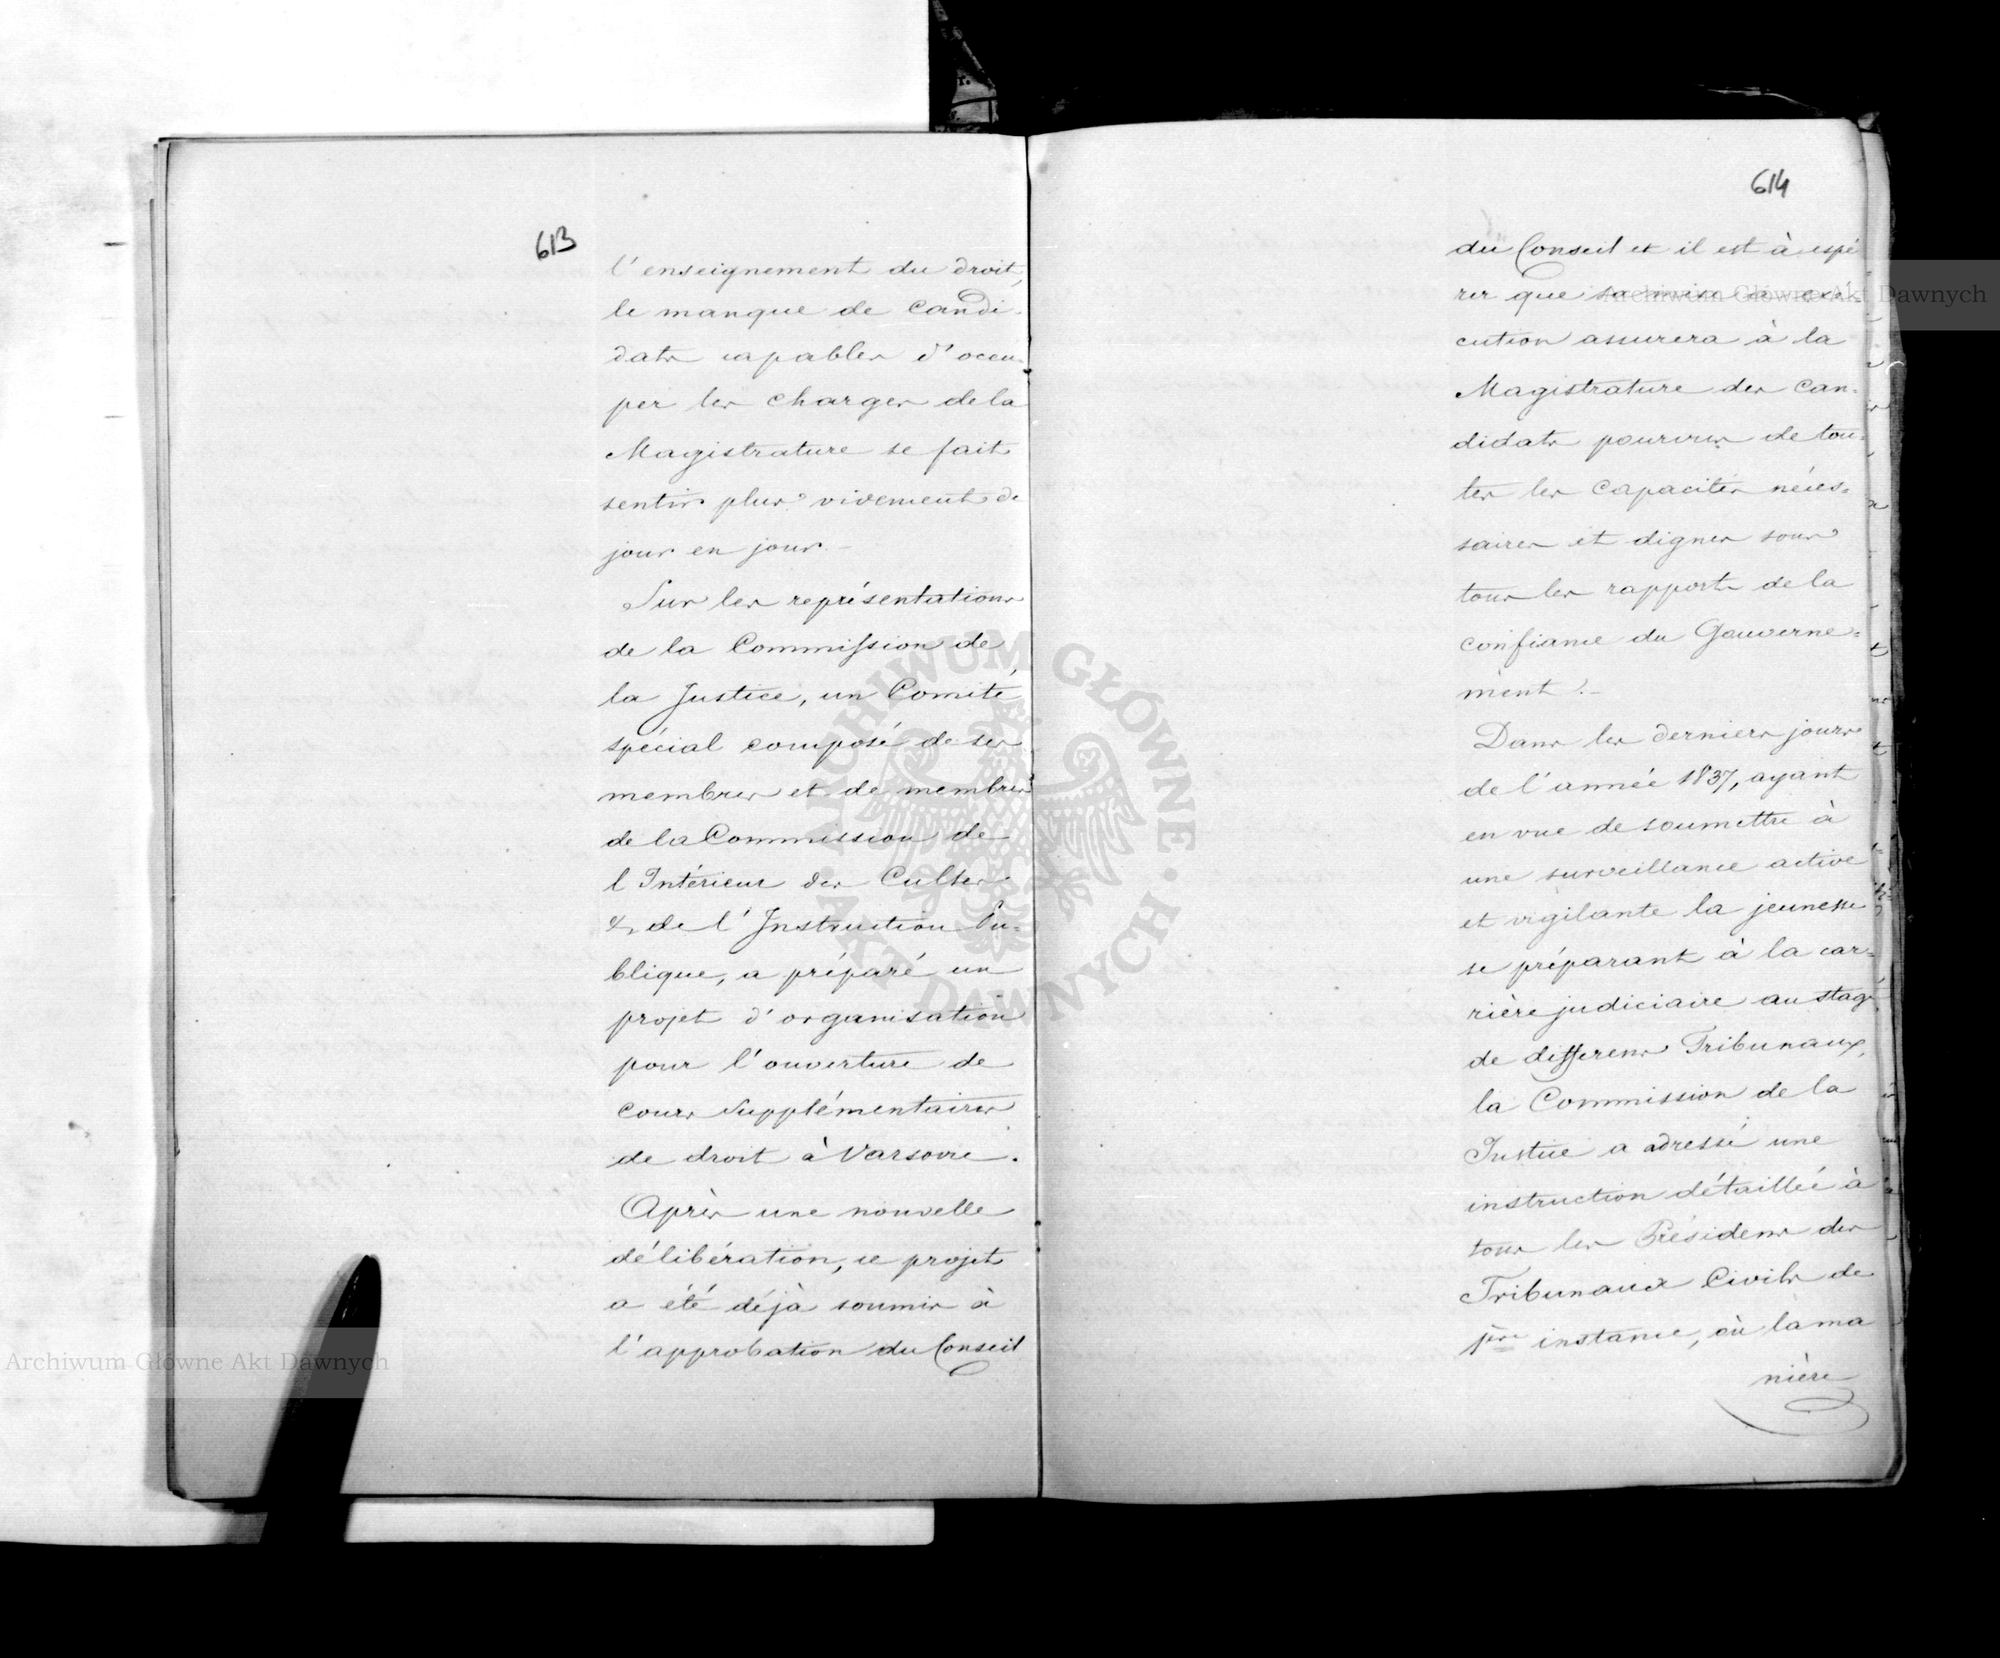 613
l'enseignement du droit,
le manque de Candi-
dats capables d'occu-
per les charges de la
Magistrature se fait
sentir plus vivement de
jour en jour. -
Sur les représentations
de la Commission de
la Justice, un Comité
spécial composé de ses
membres et de membres
de la Commission de
l'Intérieur des Cultes
& de l'Instruction Pu=
blique, a préparé un
projet d'organisation
pour l'ouverture de
cours Supplémentaires
de droit à Varsovie.
Après une nouvelle
délibération, ce projet
a été déjà soumis à
l'approbation du Conseil
614
du Conseil et il est à espé
rer que sa mise à exé-
cution assurera à la
Magistrature des Can-
didats pourvus de tou-
tes les capacités néces=
saires et dignes sous
tous les rapports de la
confiance du Gouverne=
ment. -
Dans les derniers jours
de l'année 1837, ayant
en vue de soumettre à
une surveillance active
et vigilante la jeunesse
se préparant à la car=
rière judiciaire au stage
de differens Tribunaux,
la Commission de la
Justice a adressé une
instruction détaillée à
tous les Présidens des
Tribunaux Civils de
1ère instance, où la ma
nière
ARCHIWUM GŁÓWNE AKT DAWNYCH
Archiwum Główne Akt Dawnych
Archiwum Główne Akt Dawnych